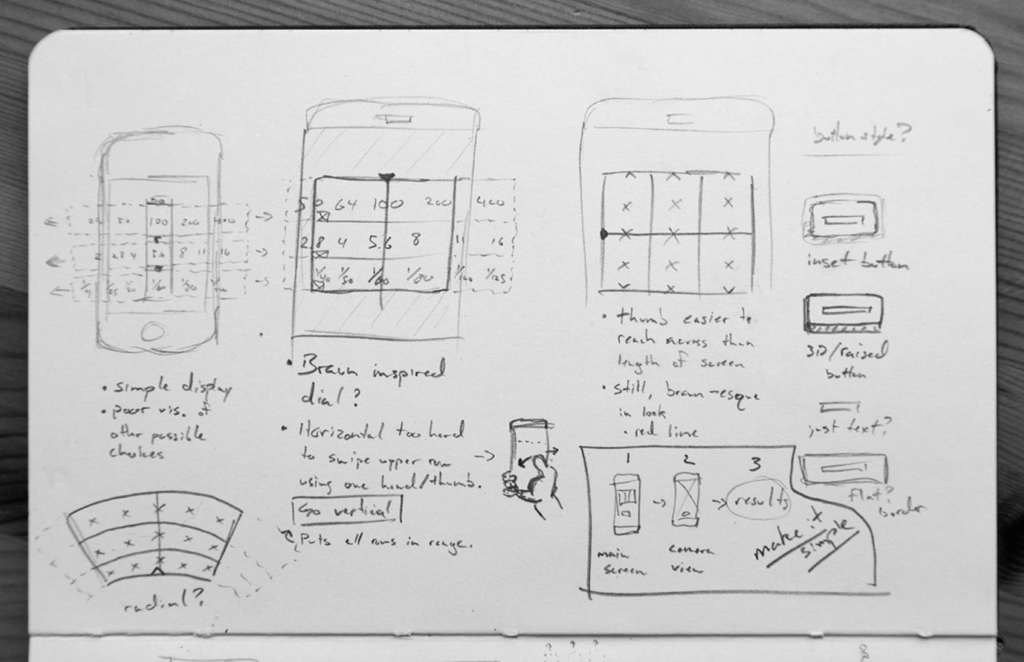 100
200
400
5 0 64 100 200 400
2 8 4 5.6 8 11 16
1/40 1/50 1/60 1/80 1/100 1/125
• simple display
• poor vis. of
other possible
choices
radial?
• Braun inspired
dial?
• Horizontal too hard
to swipe upper row
using one hand/thumb.
Go vertical
Puts all rows in range.
• thumb easier to
reach across than
length of screen
• still, braun-esque
in look
• red line
1 2 3
main
screen
camera
view
results
make it
simple
button style?
inset button
3D/raised
button
just text?
flat?
border